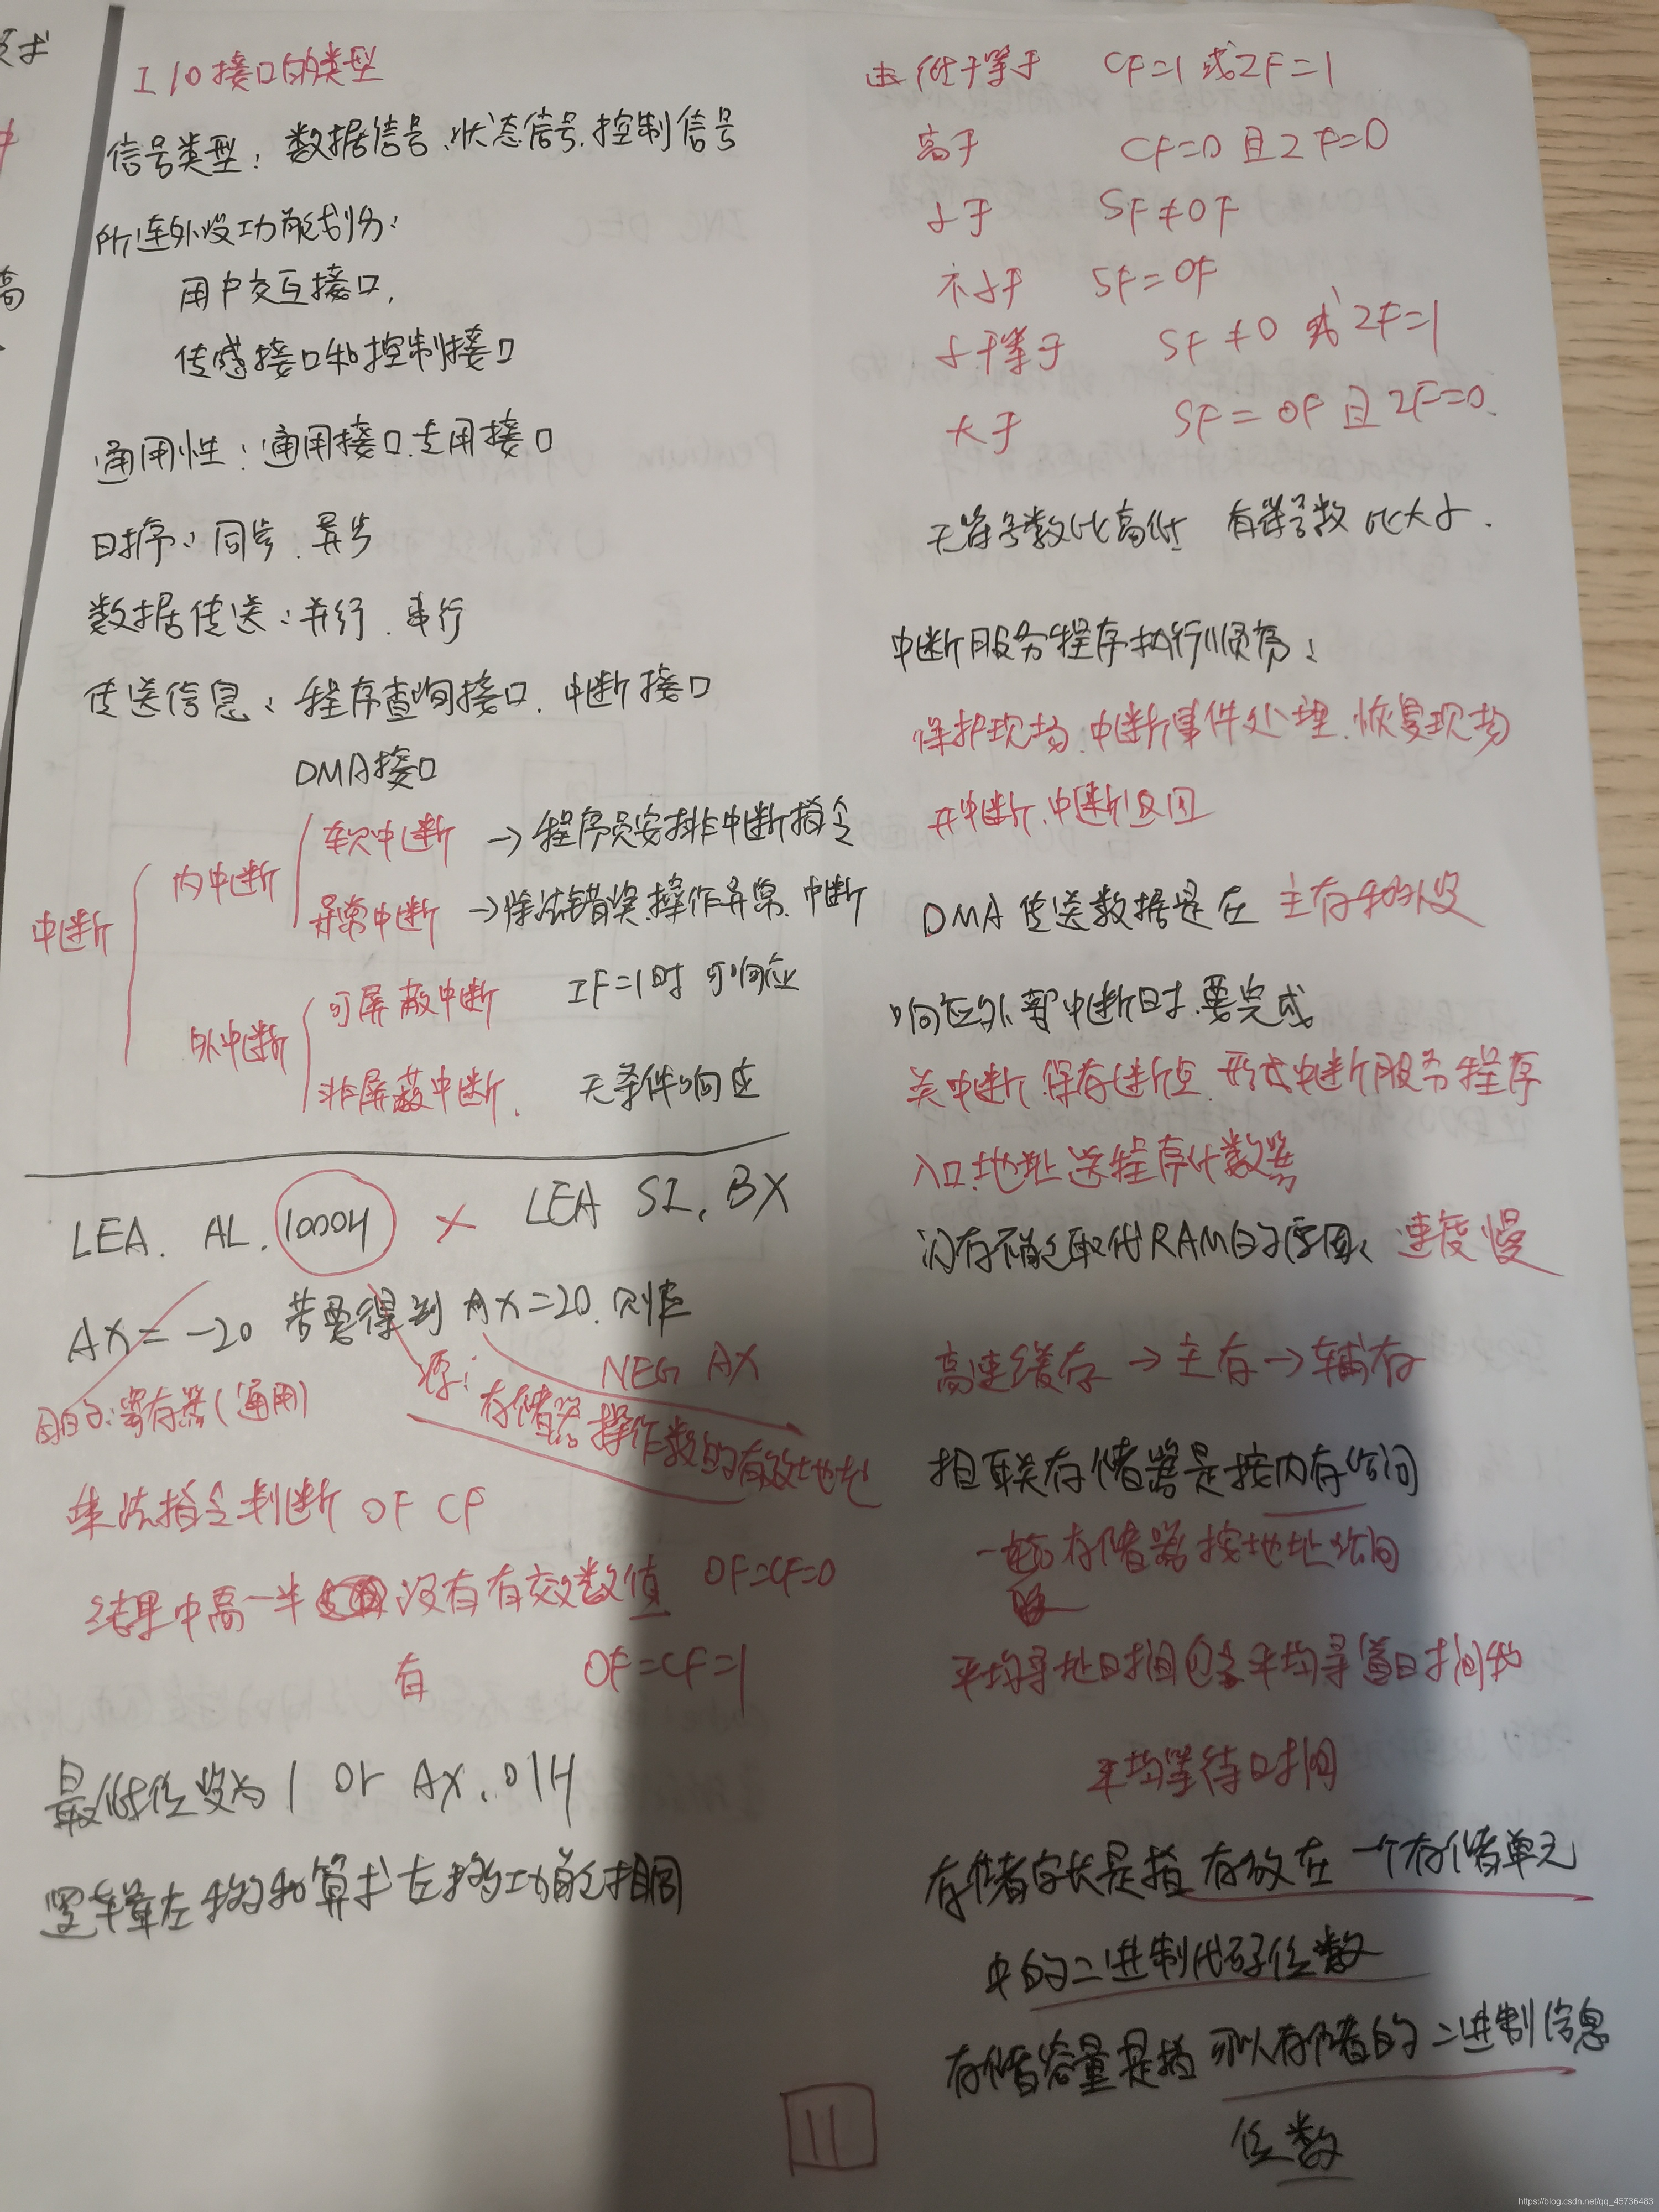 I/O接口的类型
信号类型：数据信号、状态信号、控制信号
所连外设功能划分：
用户交互接口，
传感接口和控制接口
通用性：通用接口、专用接口
时序：同步、异步
数据传送：并行、串行
传送信息：程序查询接口、中断接口
DMA接口
中断
内中断
软中断 → 程序员安排中断指令
异常中断 → 除法错误、操作异常、中断
外中断
可屏蔽中断 IF=1时 可响应
非屏蔽中断. 无条件响应
LEA. AL, 1000H × LEA SI, BX
AX=-20 若要得到 AX=20, 则
NEG AX
目的：寄存器(通用)
源：存储器操作数的有效地址
乘法指令判断 OF CF
结果中高一半 没有有效数值 OF=CF=0
有 OF=CF=1
最低位设为1 or AX, 01H
逻辑左移和算术左移功能相同
低于等于 CF=1 或ZF=1
高于 CF=0 且ZF=0
小于 SF≠OF
不小于 SF=OF
小于等于 SF≠0 或ZF=1
大于 SF=OF 且ZF=0.
无符号数比高低 有符号数比大小.
中断服务程序执行顺序：
保护现场、中断事件处理、恢复现场
开中断、中断返回
DMA 传送数据是在 主存和外设
响应外部中断时，要完成
关中断、保存断点、形成中断服务程序
入口地址送程序计数器
闪存不能取代RAM的原因、速度慢
高速缓存 → 主存 → 辅存
相联存储器是按内存访问
一般存储器按地址访问
平均寻址时间包含平均寻道时间和
平均等待时间
存储字长是指 存放在一个存储单元
中的二进制代码位数
存储容量是指 可以存储的二进制信息
位数
11
https://blog.csdn.net/qq_45736483